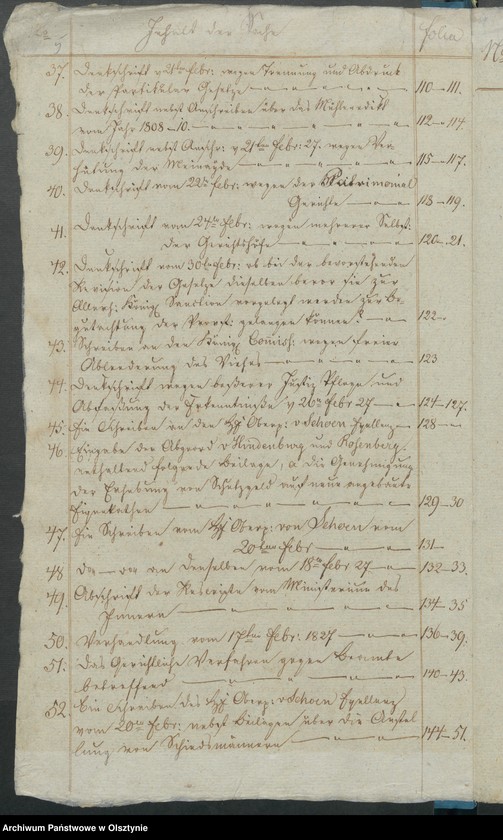 Inhalt der Sache folia
37. Denkschrift v 21ten Febr: wegen Trennung und Abdruck
der Partikular Gesetze 110–111.
38. Denkschrift nebst Anschreiben über das Mühlenedikt
vom Jahr 1808–10. 112–114.
39. Denkschrift nebst Anschr: v 21ten Febr: 27. wegen Ver-
hütung der Meineyde 115–117.
40. Denkschrift vom 22ten Febr: wegen der Patrimonial
Gerichte 118–119.
41. Denkschrift vom 24ten Febr: wegen mehrerer Selbst:
der Gerichtshöfe 120–21.
42. Denkschrift vom Febr: ob bei der bevorstehenden
Revision der Gesetze dieselben bevor sie zur
Allerh: Königl Sanction vorgelegt werden zur Be-
gutachtung der Provinz: gelangen können? 122
43. Schreiben an den Königl Commiss: wegen freier
Abledderung des Viehes 123
44. Denkschrift wegen beßerer Justiz Pflege und
Abfaßung der Erkenntniße v 26ten Febr 27 124–127.
45. Ein Schreiben an den Oberp: v Schoen Exzellenz 128
46. Eingabe der Abgeord v Hindenburg und Rosenberg,
enthaltend folgende Beilage, a die Genehmigung
der Erhebung von Schutzgeld auf neue angebaute
Eigenkathen 129–30
47. Ein Schreiben vom Oberp: von Schoen vom
20ten Febr 131
48 do — do an Denselben vom 18ten Febr 27 132–33.
49. Abschrift der Rescripte vom Ministerium des
Innern 134–35
50. Verhandlung vom 17ten Febr: 1827 136–39.
51. Das Gerichtliche Verfahren gegen Beamte
betreffend 140–43.
52. Ein Schreiben des Oberp: v Schoen Exzellenz
vom 20ten Febr: nebst Beilagen über die Anstel
lung von Schiedsmännern 144–51.
Archiwum Państwowe w Olsztynie